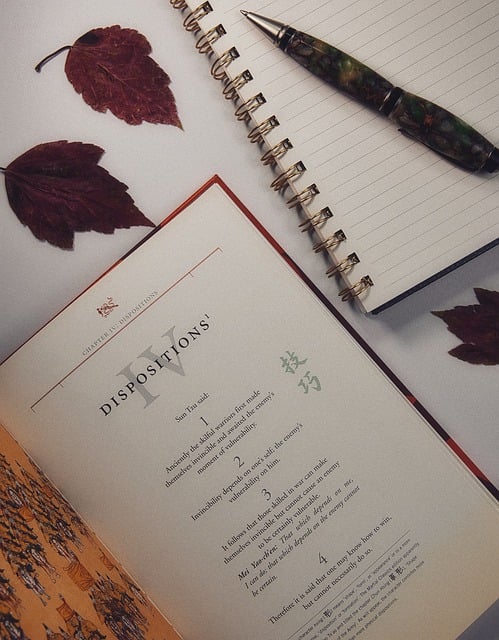 CHAPTER IV: DISPOSITIONS
IV
DISPOSITIONS¹
技巧
Sun Tzu said:
1
Anciently the skilful warriors first made
themselves invincible and awaited the enemy's
moment of vulnerability.
2
Invincibility depends on one's self; the enemy's
vulnerability on him.
3
It follows that those skilled in war can make
themselves invincible but cannot cause an enemy
to be certainly vulnerable.
Mei Yao-ch'en: That which depends on me,
I can do; that which depends on the enemy cannot
be certain.
4
Therefore it is said that one may know how to win,
but cannot necessarily do so.